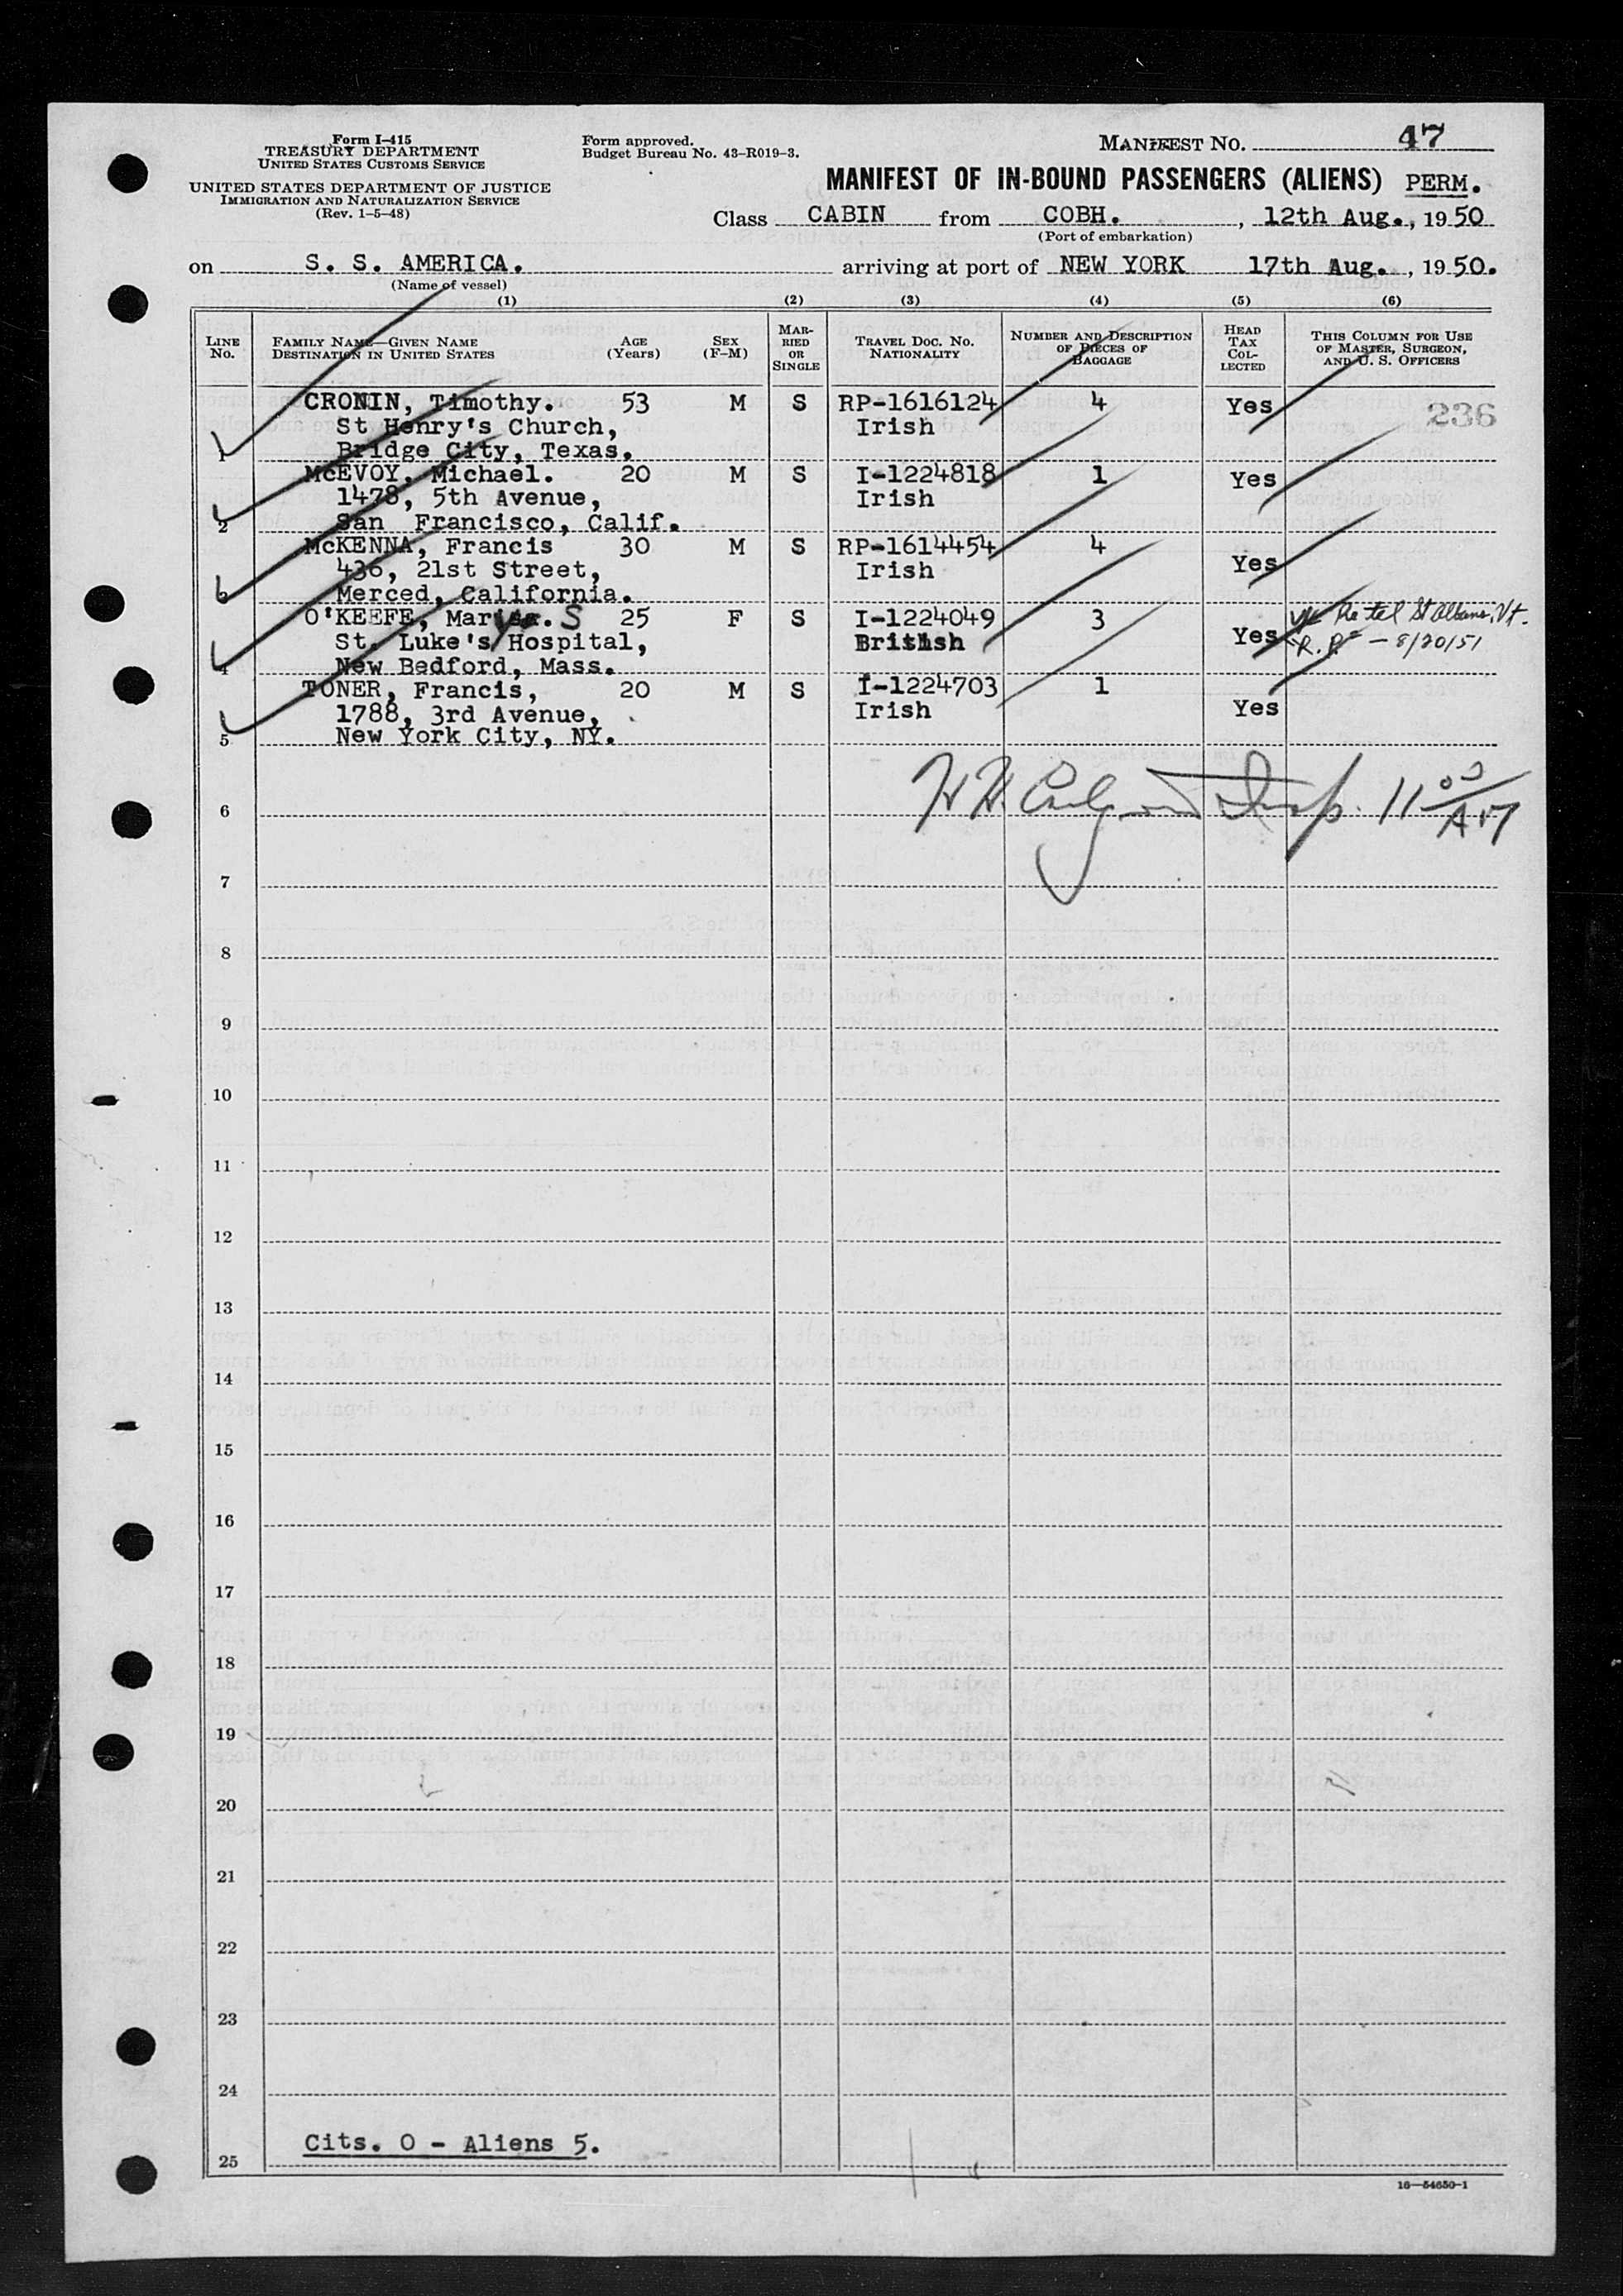 Form I-415
TREASURY DEPARTMENT
UNITED STATES CUSTOMS SERVICE
UNITED STATES DEPARTMENT OF JUSTICE
IMMIGRATION AND NATURALIZATION SERVICE
(Rev. 1-5-48)
Form approved.
Budget Bureau No. 43-R019-3.
MANIFEST NO. 47
MANIFEST OF IN-BOUND PASSENGERS (ALIENS) PERM.
Class CABIN from COBH. , 12th Aug., 1950
(Port of embarkation)
on S. S. AMERICA. arriving at port of NEW YORK 17th Aug. , 1950.
(Name of vessel)
(1) (2) (3) (4) (5) (6)
LINE No. FAMILY NAME—GIVEN NAME DESTINATION IN UNITED STATES AGE (Years) SEX (F-M) MARRIED OR SINGLE TRAVEL DOC. NO. NATIONALITY NUMBER AND DESCRIPTION OF PIECES OF BAGGAGE HEAD TAX COLLECTED THIS COLUMN FOR USE OF MASTER, SURGEON, AND U. S. OFFICERS
CRONIN, Timothy. 53 M S RP-1616124 4 Yes 236
St Henry's Church, Irish
1 Bridge City, Texas.
McEVOY, Michael. 20 M S I-1224818 1 Yes
1478, 5th Avenue, Irish
2 San Francisco, Calif.
McKENNA, Francis 30 M S RP-1614454 4 Yes
436, 21st Street, Irish
3 Merced, California.
O'KEEFE, S 25 F S I-1224049 3 Yes tel St Albans, Vt.
St. Luke's Hospital, British — 8/20/51
4 New Bedford, Mass.
TONER, Francis, 20 M S I-1224703 1 Yes
1788, 3rd Avenue, Irish
5 New York City, NY.
6
7
8
9
10
11
12
13
14
15
16
17
18
19
20
21
22
23
24
Cits. O - Aliens 5.
25
16—54650-1